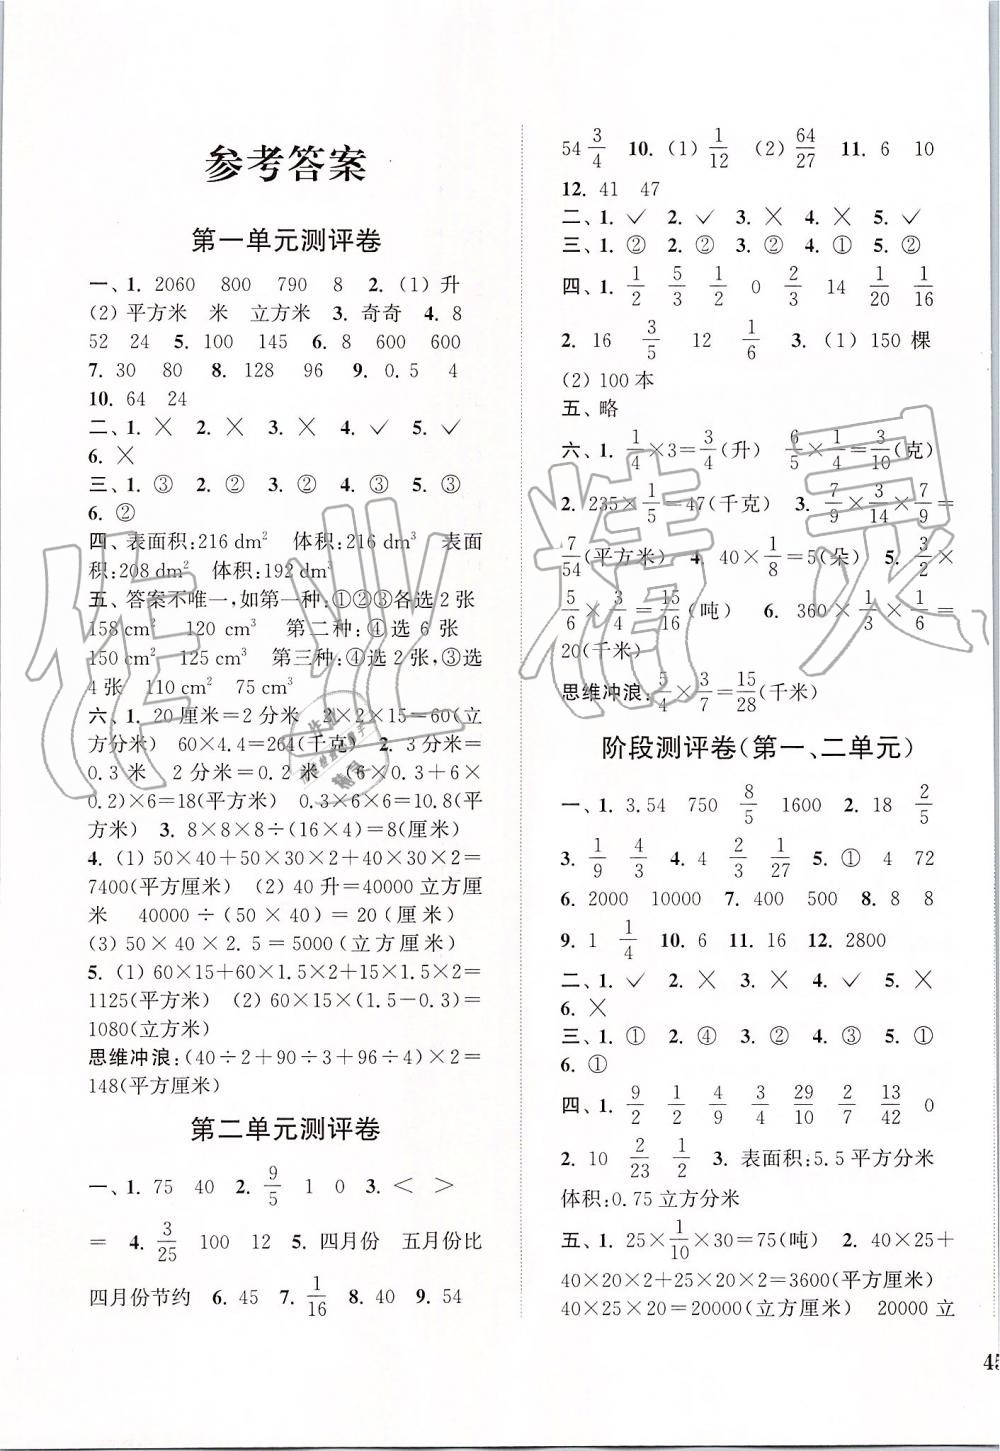 参考答案
第一单元测评卷
一、1. 2060 800 790 8 2. (1)升
(2)平方米 米 立方米 3. 奇奇 4. 8
52 24 5. 100 145 6. 8 600 600
7. 30 80 8. 128 96 9. 0.5 4
10. 64 24
二、1. × 2. × 3. × 4. ✓ 5. ✓
6. ×
三、1. ③ 2. ② 3. ② 4. ③ 5. ③
6. ②
四、表面积:216 dm² 体积:216 dm³ 表面
积:208 dm² 体积:192 dm³
五、答案不唯一,如第一种:①②③各选2张
158 cm² 120 cm³ 第二种:④选6张
150 cm² 125 cm³ 第三种:④选2张,③选
4张 110 cm² 75 cm³
六、1. 20厘米=2分米 2×2×15=60(立
方分米) 60×4.4=264(千克) 2. 3分米=
0.3米 2分米=0.2米 (6×0.3+6×
0.2)×6=18(平方米) 0.3×6×6=10.8(平
方米) 3. 8×8×8÷(16×4)=8(厘米)
4. (1)50×40+50×30×2+40×30×2=
7400(平方厘米) (2)40升=40000立方厘
米 40000÷(50×40)=20(厘米)
(3)50×40×2.5=5000(立方厘米)
5. (1)60×15+60×1.5×2+15×1.5×2=
1125(平方米) (2)60×15×(1.5-0.3)=
1080(立方米)
思维冲浪:(40÷2+90÷3+96÷4)×2=
148(平方厘米)
第二单元测评卷
一、1. 75 40 2. 9/5 1 0 3. < >
= 4. 3/25 100 12 5. 四月份 五月份比
四月份节约 6. 45 7. 1/16 8. 40 9. 54
54 3/4 10. (1) 1/12 (2) 64/27 11. 6 10
12. 41 47
二、1. ✓ 2. ✓ 3. × 4. × 5. ✓
三、1. ② 2. ② 3. ② 4. ① 5. ②
四、1. 1/2 5/3 1/2 0 2/3 14 1/20 1/16
2. 16 3/5 12 1/6 3. (1)150棵
(2)100本
五、略
六、1. 1/4×3=3/4(升) 6/5×1/4=3/10(克)
2. 235×1/5=47(千克) 3. 7/9×3/14×7/9=
7/54(平方米) 4. 40×1/8=5(朵) 5. 3/2×
5/6×3/4=15/16(吨) 6. 360×1/3×1/6=
20(千米)
思维冲浪:5/4×3/7=15/28(千米)
阶段测评卷(第一、二单元)
一、1. 3.54 750 8/5 1600 2. 18 2/5
3. 1/9 4/3 4. 4 2/3 1/27 5. ① 4 72
6. 2000 10000 7. 400 500 8. 8 8
9. 1 1/4 10. 6 11. 16 12. 2800
二、1. ✓ 2. × 3. × 4. ✓ 5. ×
6. ×
三、1. ① 2. ④ 3. ② 4. ③ 5. ①
6. ①
四、1. 9/2 1/2 4/9 3/4 29/10 2/7 13/42 0
2. 10 2/23 1/2 3. 表面积:5.5平方分米
体积:0.75立方分米
五、1. 25×1/10×30=75(吨) 2. 40×25+
40×20×2+25×20×2=3600(平方厘米)
40×25×20=20000(立方厘米) 20000立
45
作业精灵